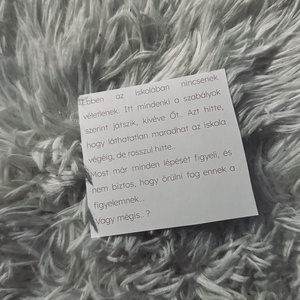 Ebben az iskolában nincsenek
véletlenek. Itt mindenki a szabályok
szerint játszik, kivéve Őt.. Azt hitte,
hogy láthatatlan maradhat az iskola
végéig, de rosszul hitte.
Most már minden lépését figyeli, és
nem biztos, hogy örülni fog ennek a
figyelemnek...
Vagy mégis.. ?